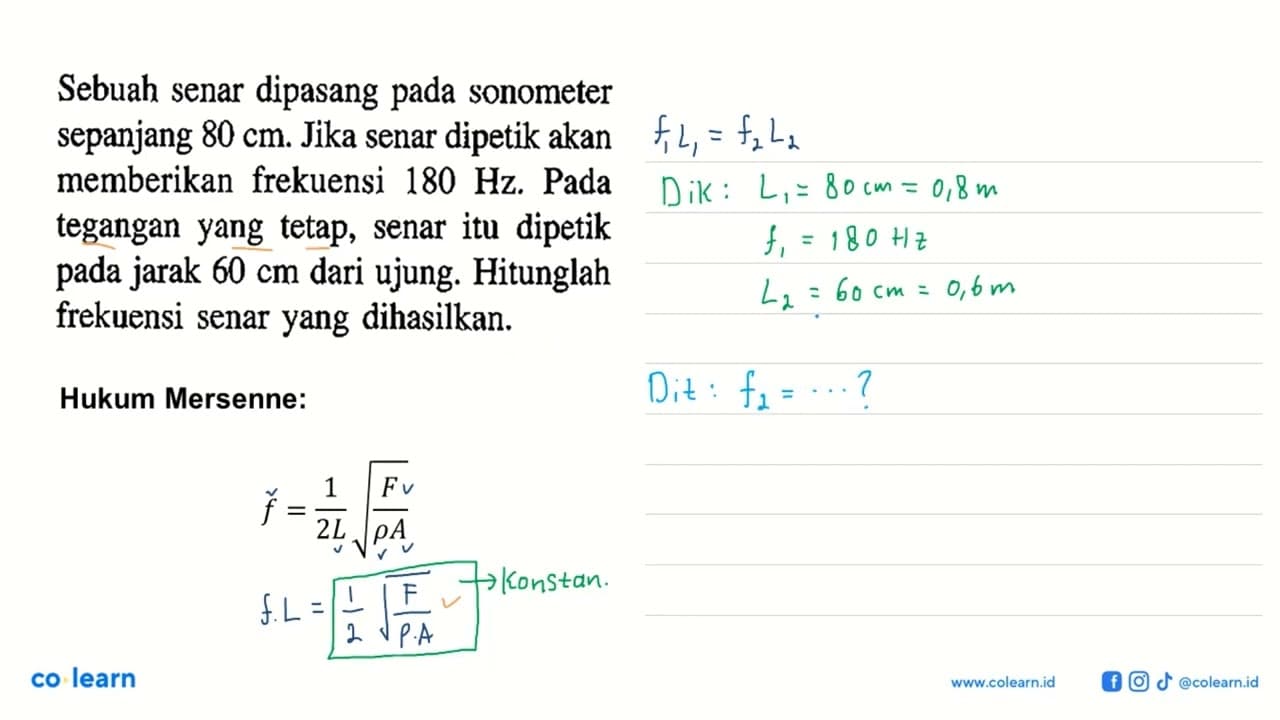 Sebuah senar dipasang pada sonometer
sepanjang 80 cm. Jika senar dipetik akan
memberikan frekuensi 180 Hz. Pada
tegangan yang tetap, senar itu dipetik
pada jarak 60 cm dari ujung. Hitunglah
frekuensi senar yang dihasilkan.
Hukum Mersenne:
f = 1/2L √(F/ρA)
f.L = 1/2 √(F/ρ.A) → Konstan.
f₁L₁ = f₂L₂
Dik : L₁ = 80 cm = 0,8 m
f₁ = 180 Hz
L₂ = 60 cm = 0,6 m
Dit : f₂ = ... ?
co learn
www.colearn.id
@colearn.id